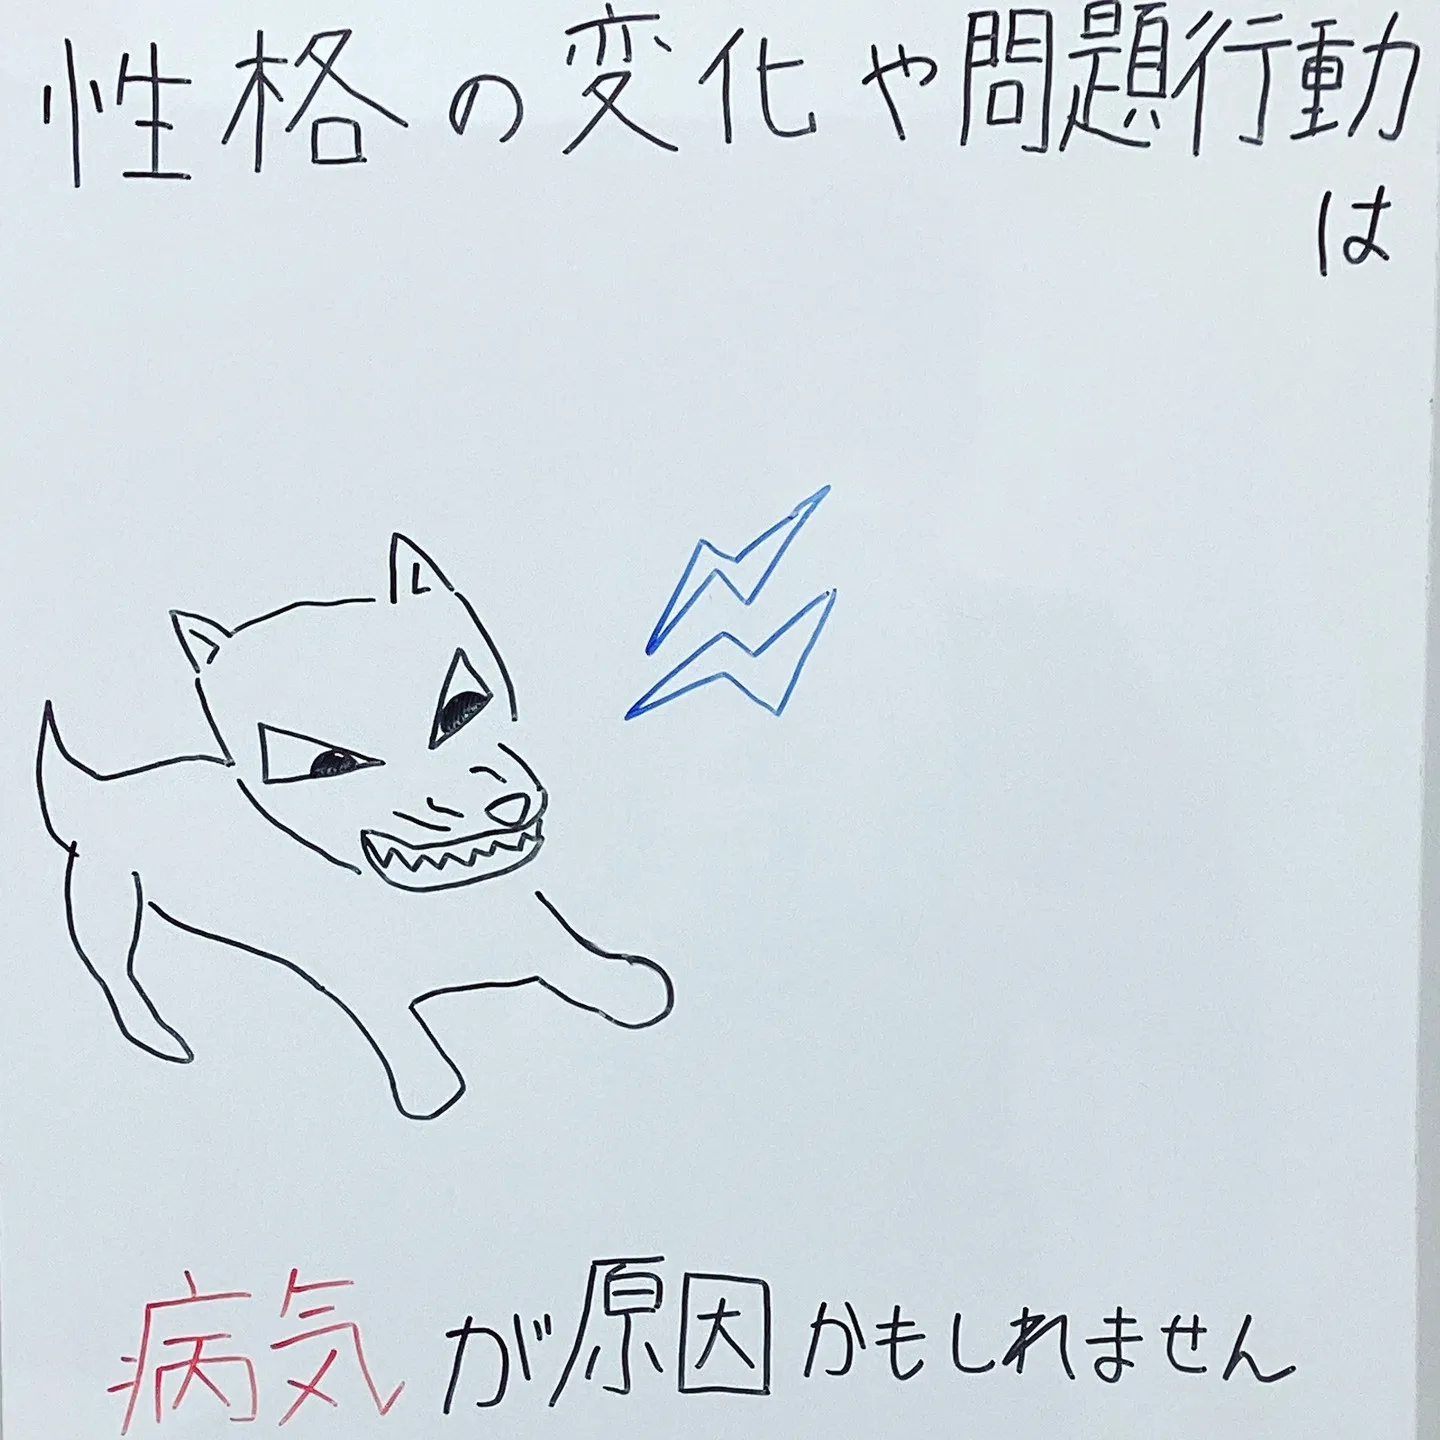 性格の変化や問題行動
は
病気が原因かもしれません